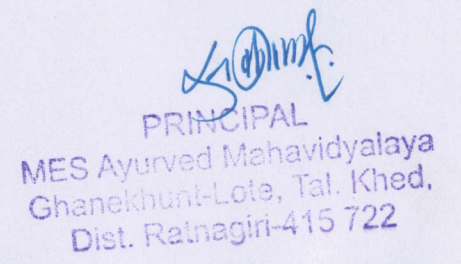 PRINCIPAL
MES Ayurved Mahavidyalaya
Ghanekhunt-Lote, Tal. Khed,
Dist. Ratnagiri-415 722